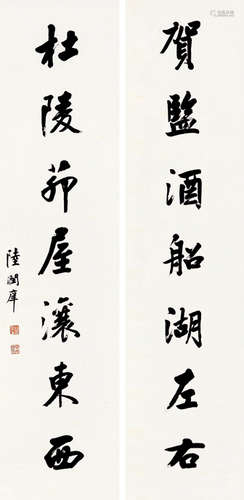 賀監酒船湖左右
杜陵茆屋瀼東西
陸潤庠